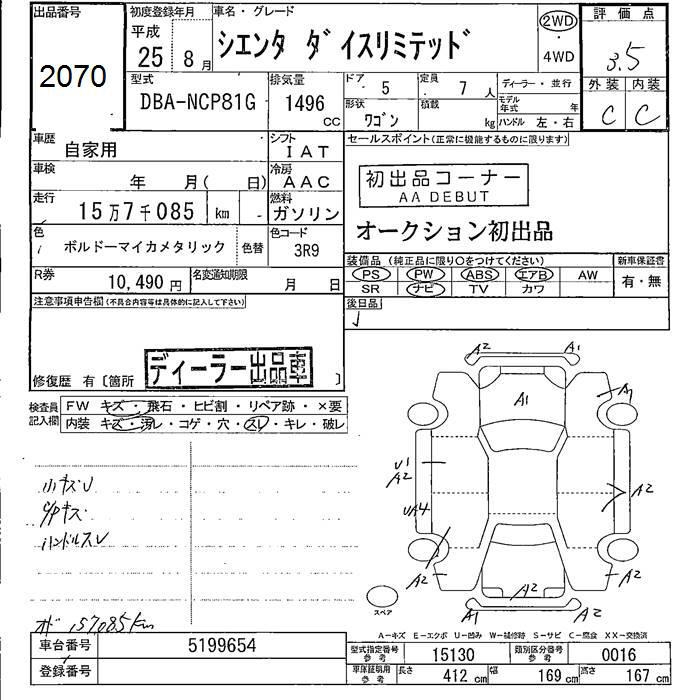 出品番号
2070
初度登録年月
平成
25 8月
車名・グレード
シエンタ ダイスリミテッド
2WD
4WD
評価点
3.5
型式
DBA-NCP81G
排気量
1496
CC
ドア 5
定員 7 人
形状 ワゴン
積載 kg
ディーラー・並行
モデル年式 年
ハンドル 左・右
外装 内装
C C
車歴 自家用
シフト IAT
車検 年 月( 日)
冷房 AAC
走行 15万7千085 km
燃料 ガソリン
色 ボルドーマイカメタリック
色替
色コード 3R9
R券 10,490円
名変通知期限 月 日
セールスポイント(正常に機能するものに限ります)
初出品コーナー
AA DEBUT
オークション初出品
装備品(純正品に限り○をつけてください)
PS PW ABS エアB AW
SR ナビ TV カワ
新車保証書
有・無
後日品
注意事項申告欄(不具合内容等は具体的に記入して下さい)
ディーラー出品車
修復歴 有〔箇所 〕
検査員記入欄
FW キズ・飛石・ヒビ割・リペア跡・×要
内装 キズ・汚レ・コゲ・穴・スレ・キレ・破レ
小キズU
ハンドルスレ
157,085km
A2 A1
A1
U1
A2
UA4
A2
A2 A2 A2
A1 A2
スペア
A-キズ E-エクボ U-凹み W-補修跡 S-サビ C-腐食 XX-交換済
車台番号 5199654
登録番号
型式指定番号 参考 15130
類別区分番号 参考 0016
車庫証明用 参考
長さ 412 cm
幅 169 cm
高さ 167 cm